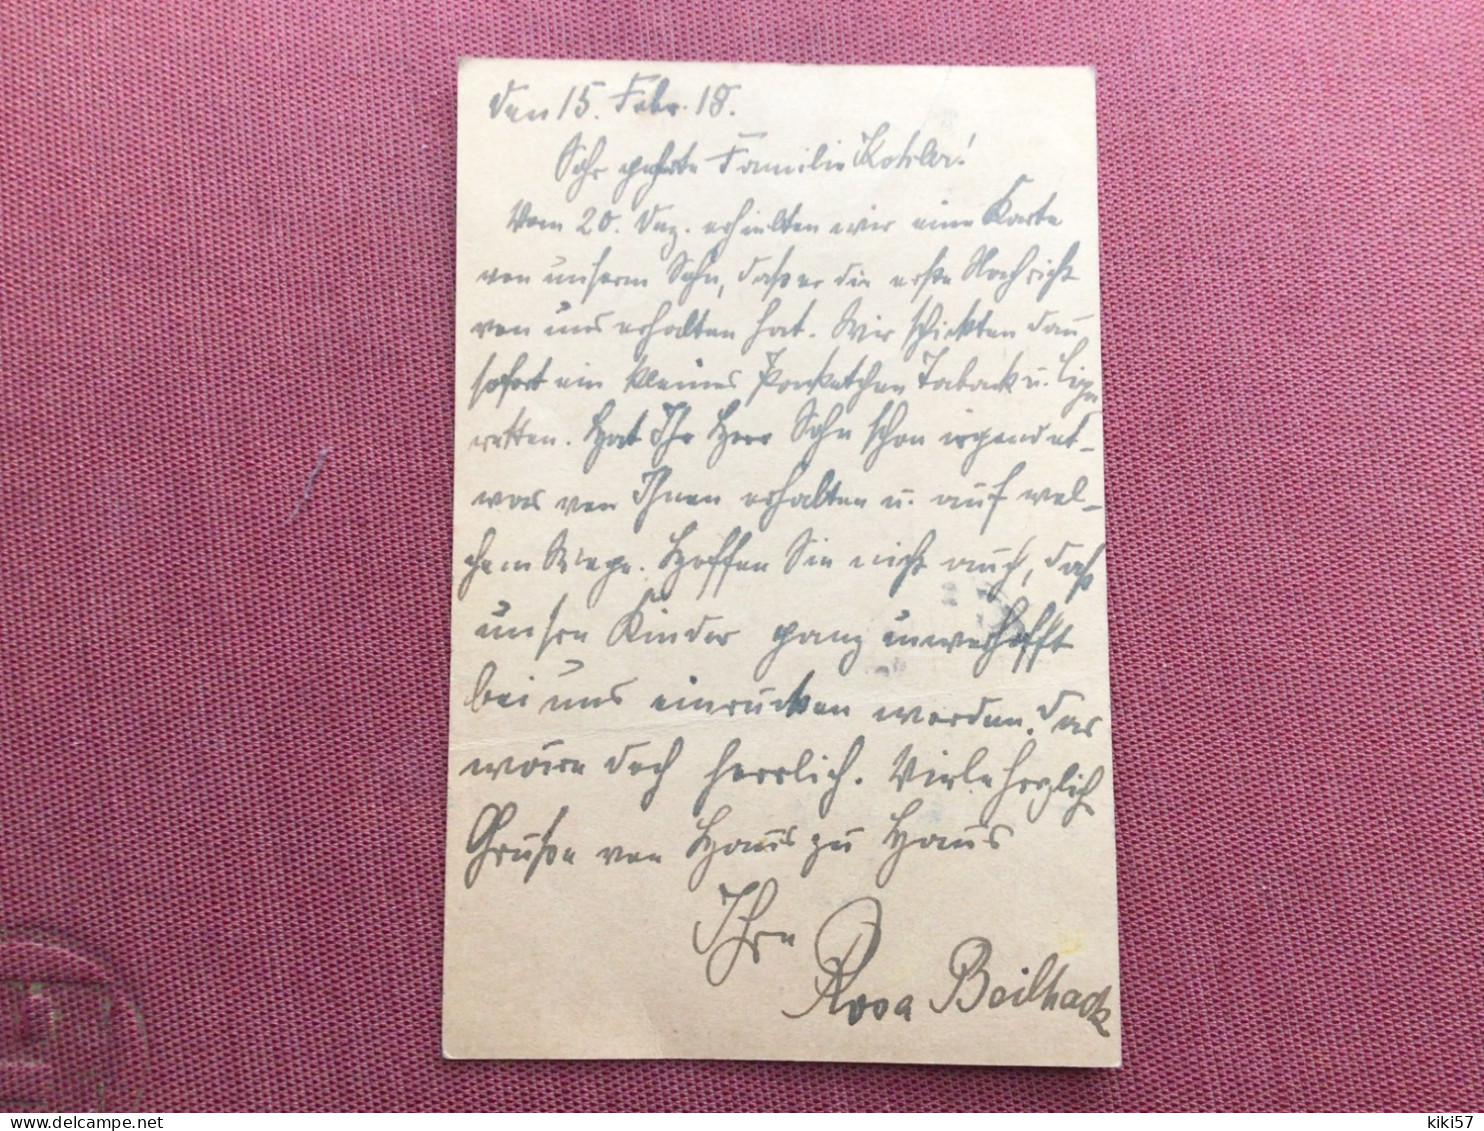 den 15. Febr. 18.
Sehr geehrte Familie Kohler!
Vom 20. Dez. erhielten wir eine Karte
von unserm Sohn, daß er die erste Nachricht
von uns erhalten hat. Wir schickten dann
sofort ein kleines Packetchen Taback u. Ciga
retten. Hat Ihr Herr Sohn schon irgend et-
was von Ihnen erhalten u. auf wel-
chem Wege. Hoffen Sie nicht auch, daß
unsre Kinder ganz unverhofft
bei uns einrücken werden. Das
wäre doch herrlich. Viele herzlich
Grüße von Haus zu Haus
Ihre
Rosa Beilhack
kiki57